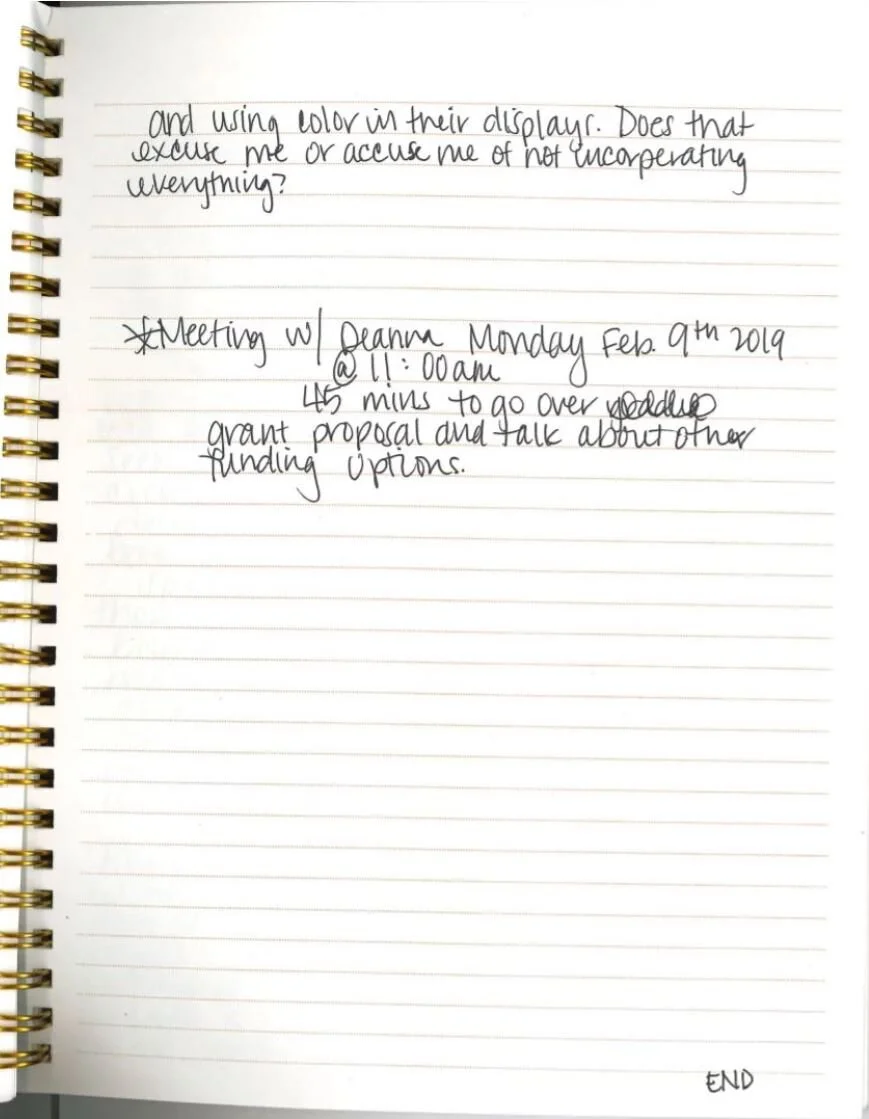 and using color in their displays. Does that
excuse me or accuse me of not incorperating
everything?
*Meeting w/ Deanna Monday Feb. 9th 2019
@ 11:00am
45 mins to go over
grant proposal and talk about other
funding options.
END